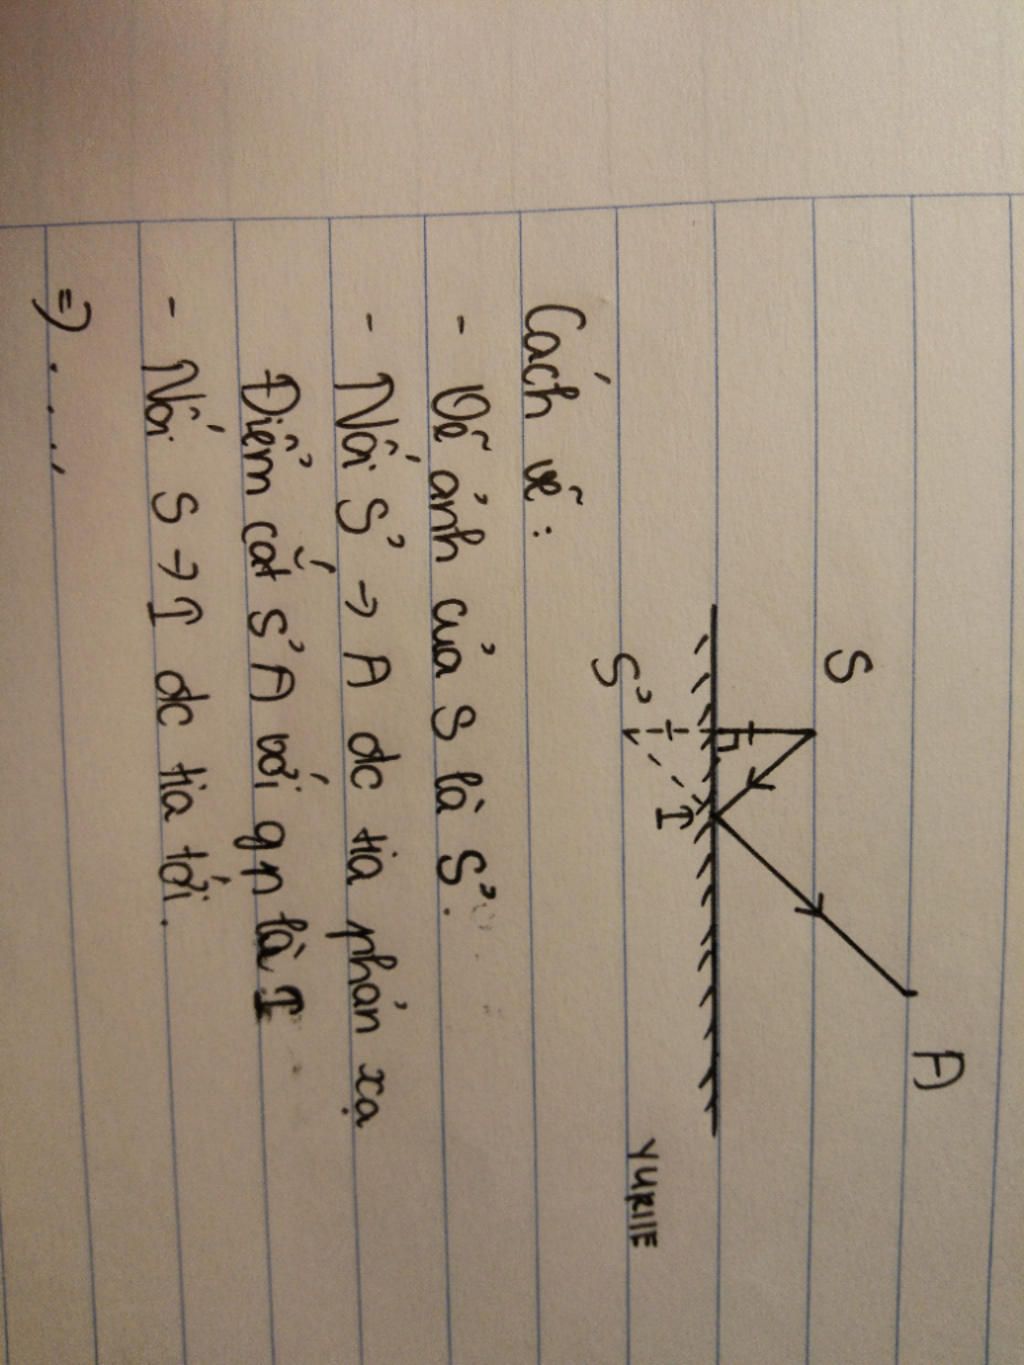 S
A
I
S'
YURIIE
Cách vẽ:
- Vẽ ảnh của S là S'.
- Nối S' → A đc tia phản xạ
Điểm cắt S'A với gp là I
- Nối S → I đc tia tới.
=> .....